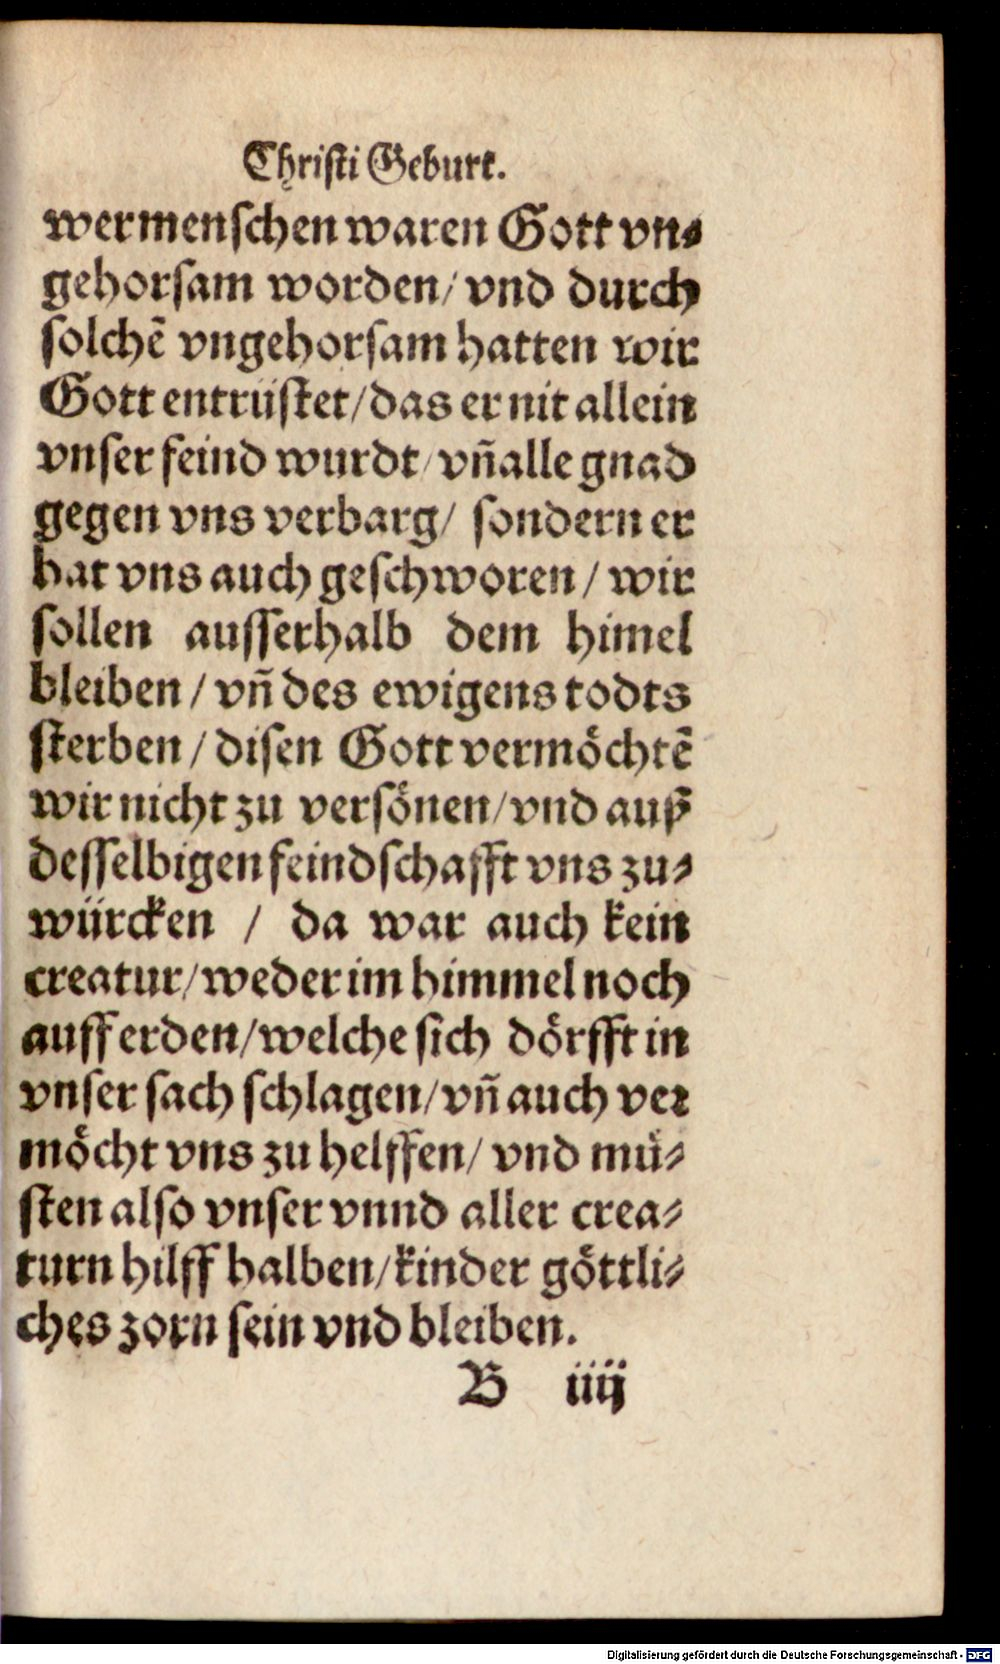 Christi Geburt.
wer menschen waren Gott vn⸗
gehorsam worden/ vnd durch
solchē vngehorsam hatten wir
Gott entrüstet/das er nit allein
vnser feind wurdt/ vn̄ alle gnad
gegen vns verbarg/ sondern er
hat vns auch geschworen / wir
sollen ausserhalb dem himel
bleiben / vn̄ des ewigens todts
sterben / disen Gott vermöchtē
wir nicht zu versönen/vnd auß
desselbigen feindschafft vns zu⸗
würcken / da war auch kein
creatur/weder im himmel noch
auff erden/welche sich dörfft in
vnser sach schlagen/vn̄ auch ver
möcht vns zu helffen/ vnd mü⸗
sten also vnser vnnd aller crea⸗
turn hilff halben/kinder göttli⸗
ches zorn sein vnd bleiben.
B iiij
Digitalisierung gefördert durch die Deutsche Forschungsgemeinschaft - DFG